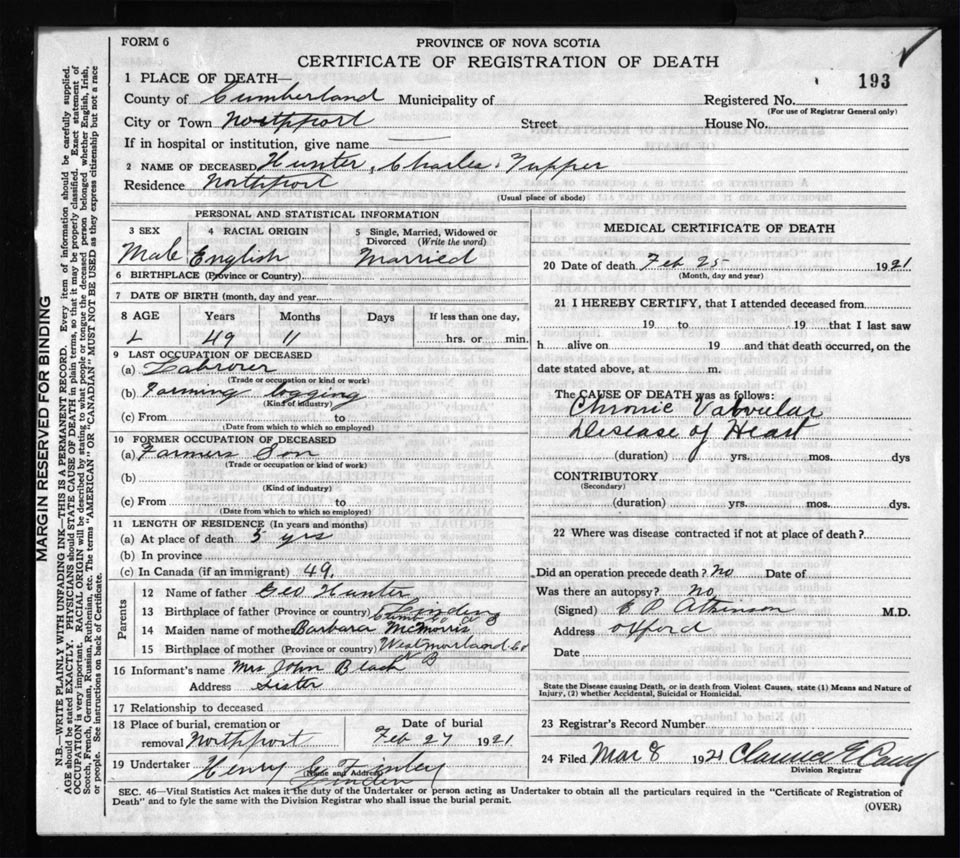 FORM 6
PROVINCE OF NOVA SCOTIA
CERTIFICATE OF REGISTRATION OF DEATH
193
1 PLACE OF DEATH—
County of Cumberland Municipality of
Registered No.
(For use of Registrar General only)
City or Town Northport Street House No.
If in hospital or institution, give name
2 NAME OF DECEASED Hunter, Charles Tupper
Residence Northport
(Usual place of abode)
PERSONAL AND STATISTICAL INFORMATION
3 SEX 4 RACIAL ORIGIN 5 Single, Married, Widowed or Divorced (Write the word)
Male English Married
6 BIRTHPLACE (Province or Country)
7 DATE OF BIRTH (month, day and year)
8 AGE Years Months Days If less than one day,
49 11 hrs. or min.
9 LAST OCCUPATION OF DECEASED
(a) Labrorer
(Trade or occupation or kind or work)
(b) Farming logging
(Kind of industry)
(c) From to
(Date from which to which so employed)
10 FORMER OCCUPATION OF DECEASED
(a) Farmers Son
(Trade or occupation or kind of work)
(b)
(Kind of industry)
(c) From to
(Date from which to which so employed)
11 LENGTH OF RESIDENCE (In years and months)
(a) At place of death 5 yrs
(b) In province
(c) In Canada (if an immigrant) 49.
Parents
12 Name of father Geo Hunter
13 Birthplace of father (Province or country) Linden
Cumb Co N S
14 Maiden name of mother Barbara McMorris
15 Birthplace of mother (Province or country) Westmorland Co
N B
16 Informant's name Mrs John Black
Address Sister
17 Relationship to deceased
18 Place of burial, cremation or removal Northport
Date of burial
Feb 27 1921
19 Undertaker Henry G Finley
(Name and Address)
Linden
MEDICAL CERTIFICATE OF DEATH
20 Date of death Feb 25 1921
(Month, day and year)
21 I HEREBY CERTIFY, that I attended deceased from
19 to 19 that I last saw
h alive on 19 and that death occurred, on the
date stated above, at m.
The CAUSE OF DEATH was as follows:
Chronic Valvular
Disease of Heart
(duration) yrs. mos. dys
CONTRIBUTORY
(Secondary)
(duration) yrs. mos. dys.
22 Where was disease contracted if not at place of death?
Did an operation precede death? No Date of
Was there an autopsy? No
(Signed) E P Atkinson M.D.
Address Oxford
Date
State the Disease causing Death, or in death from Violent Causes, state (1) Means and Nature of
Injury, (2) whether Accidental, Suicidal or Homicidal.
23 Registrar's Record Number
24 Filed Mar 8 1921 Clarence
Division Registrar
SEC. 46—Vital Statistics Act makes it the duty of the Undertaker or person acting as Undertaker to obtain all the particulars required in the "Certificate of Registration of
Death" and to fyle the same with the Division Registrar who shall issue the burial permit.
(OVER)
MARGIN RESERVED FOR BINDING
N.B.—WRITE PLAINLY WITH UNFADING INK—THIS IS A PERMANENT RECORD. Every item of information should be carefully supplied.
AGE should be stated EXACTLY. PHYSICIANS should STATE CAUSE OF DEATH in plain terms, so that it may be properly classified. Exact statement of
OCCUPATION is very important. RACIAL ORIGIN will be described by stating to what people or tongue the deceased person belonged whether English, Irish,
Scotch, French, German, Russian, Ruthenian, etc. The terms "AMERICAN" OR "CANADIAN" MUST NOT BE USED as they express citizenship but not a race
or people. See instructions on back of Certificate.